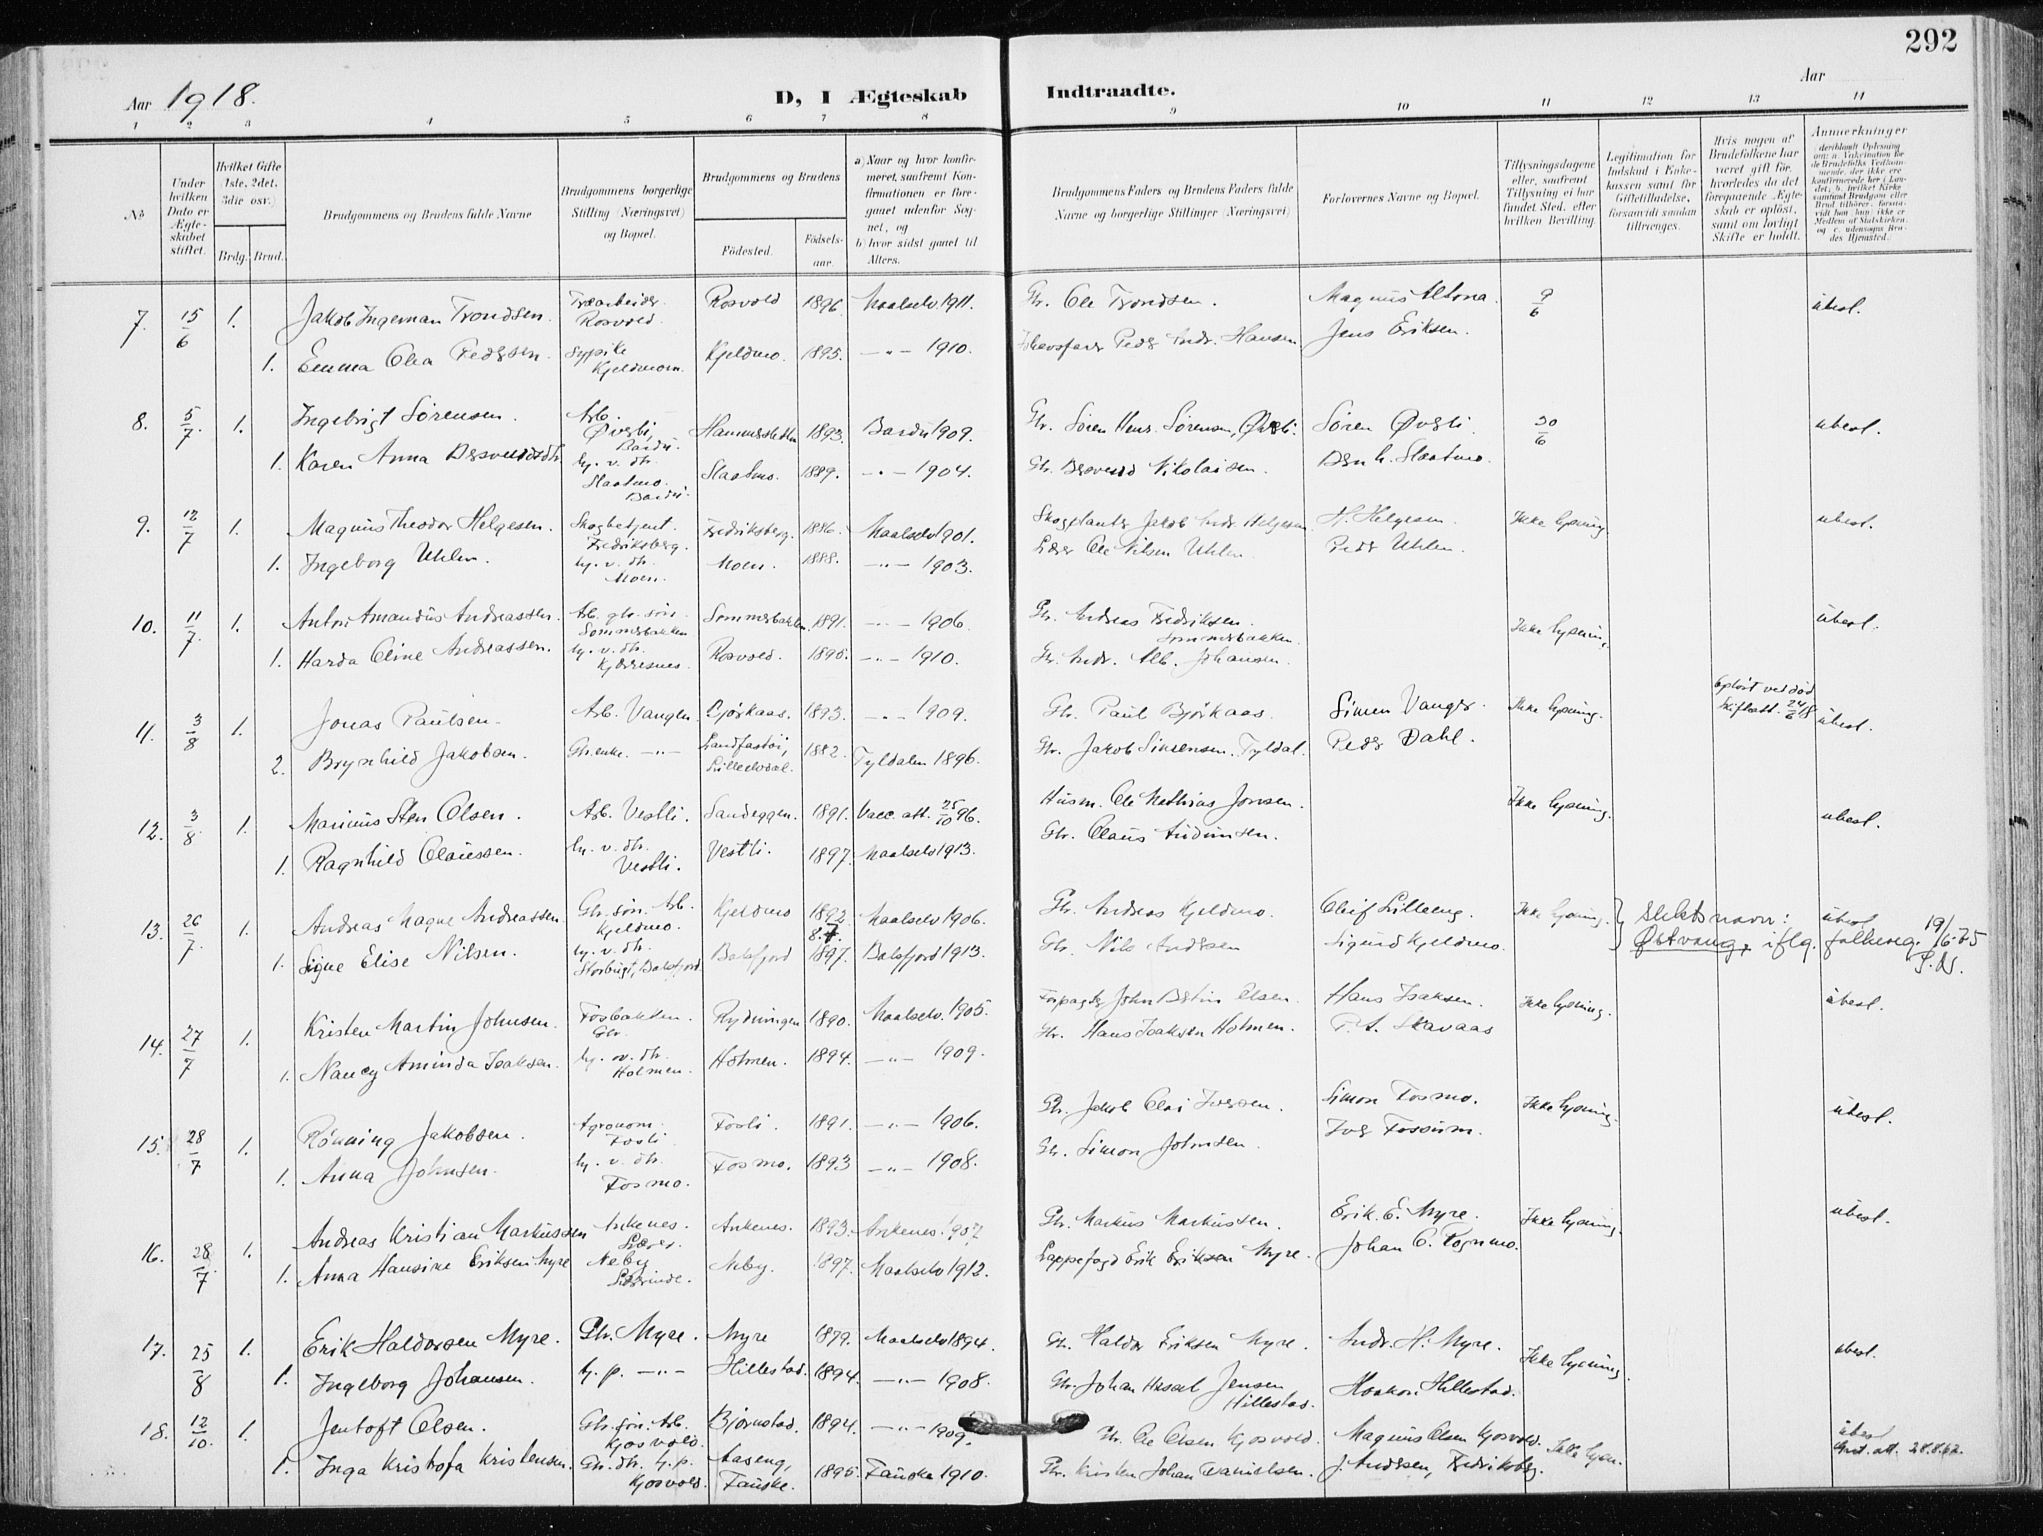 292
Aar 1918.
D, I Ægteskab Indtraadte.
Aar
1 2 3 4 5 6 7 8 9 10 11 12 13 14
No
Under hvilken Dato er Ægteskabet stiftet.
Hvilket Gifte 1ste, 2det, 3die osv.)
Brdg. Brud.
Brudgommens og Brudens fulde Navne
Brudgommens borgerlige Stilling (Næringsvei) og Bopæl.
Brudgommens og Brudens
Födested.
Födselsaar.
a) Naar og hvor konfirmeret, saafremt Konfirmationen er foregaaet udenfor Sognet, og b) hvor sidst gaaet til Alters.
Brudgommens Faders og Brudens Faders fulde Navne og borgerlige Stillinger (Næringsvei)
Forlovernes Navne og Bopæl.
Tillysningsdagene eller, saafremt Tillysning ei har fundet Sted, efter hvilken Bevilling.
Legitimation for Indskud i Enkekassen samt for Giftetilladelse, forsaavidt saadan tiltrænges.
Hvis nogen af Brudefolkene har været gift før, hvorledes da det foregaaende Ægteskab er opløst, samt om lovligt Skifte er holdt.
Anmerkninger
7. 15/6 1. Jakob Ingeman Trondsen. Træarbeider Rosvold. Rosvold 1896. Maalselv 1911. Gbr. Ole Trondsen. Magnus Altona. 9/6 übest.
1. Emma Olea Pedersen. Sypike Kjeldmoen. Kjeldmo. 1895. —"— 1910. Peder Andr. Hansen Jens Eriksen.
8. 5/7. 1. Ingebrigt Sørensen. Arb. Øverli, Bardu. 1893. Bardu 1909. Gbr. Søren Hens. Sørensen, Øverli. Søren Øverli. 30/6 übest.
1. Karen Anna h. v. dtr. Slaatmo. Bardu. Slaatmo. 1889. —"— 1904. Gbr. Nikolaisen. Slaatmo.
9. 12/7 1. Magnus Theodor Helgesen. Skogbetjent. Fredriksberg. Fredriksberg. 1886. Maalselv 1901. Skogplanter Jakob Andr. Helgesen H. Helgesen Ikke lysning übest.
1. Ingeborg Uhlen. h. v. dtr. Moen. Moen. 1888. —"— 1903. Lærer Ole Nilsen Uhlen. Peder Uhlen.
10. 11/7. 1. Anton Amandus Andreassen. Arb. gbr. søn. Sommerbakken Sommerbakken. 1891. —"— 1906. Gbr. Andreas Fredriksen. Sommerbakken. Ikke lysning. übest.
1. Harda Oline Andreassen. h. v. dtr. Kjerresnes. Rosvold. 1895. —"— 1910. Gbr. Andr. Alb. Johansen.
11. 3/8 1. Jonas Paulsen. Arb. Vangen. Bjørkaas. 1893. —"— 1909. Gbr. Paul Bjørkaas. Simen Vanger. Ikke lysning. Opløst ved død Skifteatt. 24/6 18 übest.
2. Brynhild Jakobsen. Gbr. enke. —"— Landfastøi, Lilleelvdal. 1882. Tyldalen 1896. Gbr. Jakob Simensen. Tyldal. Peder Dahl.
12. 3/8. 1. Marinus Sten Olsen. Arb. Vestli. Sandeggen. 1891. Vacc. att. 25/10 96. Husm. Ole Mathias Jonsen. Ikke lysning. übest.
1. Ragnhild Olaussen. h. v. dtr. Vestli. Vestli. 1897. Maalselv 1913. Gbr. Olaus Andersen.
13. 26/7 1. Andreas Magne Andreassen. Gbr. søn. Arb. Kjeldmo. Kjeldmo 1892 8.7. Maalselv 1906. Gbr. Andreas Kjeldmo. Oluf Lilleeng. Ikke lysning. Slektsnavn: Østvang, iflg. folkereg. 19/6-75 S.N. übest
1. Signe Elise Nilsen. h. v. dtr. Storbugt, Balsfjord. Balsfjord 1897. Balsfjord 1913. Gbr. Nils Andersen Sigurd Kjeldmo.
14. 27/7 1. Kristen Martin Johnsen. Fosbakken. Gbr. Rydningen 1890. Maalselv. 1905. Forpagter John Bertin Olsen. Hans Isaksen. Ikke lysning. übest.
1. Nancy Aminda Isaksen. h. v. dtr. Holmen. Holmen. 1894. —"— 1909. Gbr. Hans Isaksen Holmen. P. A. Skavaas
15. 28/7 1. Rønning Jakobsen. Agronom. Fosli Fosli. 1891. —"— 1906. Gbr. Jakob Olai Iversen. Simon Fosmo. Ikke lysning. übest.
1. Anna Johnsen. h. v. dtr. Fosmo. Fosmo. 1893 —"— 1908. Gbr. Simon Johnsen. Iver Fossum.
16. 28/7 1. Andreas Kristian Markussen Ankenes. Lærer. Ankenes. 1893. Ankenes. 1907 Gbr. Markus Markussen. Erik E. Myre. Ikke lysning. übest.
1. Anna Hansine Eriksen Myre Neby Lærerinde. Neby. 1897. Maalselv 1912. Lappefogd Erik Eriksen Myre. Johan C. Fognmo.
17. 25/8 1. Erik Haldorsen Myre. Gbr. Myre. Myre 1879. Maalselv 1894. Gbr. Haldor Eriksen Myre. Andr. H. Myre. Ikke lysning. übest.
1. Ingeborg Johansen. h. p. —"— Hillestad. 1894. —"— 1908. Gbr. Johan Hasael Jensen Hillestad. Haakon Hillestad.
18. 12/10. 1. Jentoft Olsen. Gbr. søn. Arb. Kjosvold. Bjørnstad. 1894. —"— 1909. Gbr. Ole Olsen Kjosvold. Magnus Olsen Kjosvold. Ikke lysn. übest 28.8.62.
1. Inga Kristofa Kristensen. Gbr. dtr. h. p. Kjosvold. Aaseng, Fauske. 1895. Fauske 1910. Gbr. Kristen Johan Danielsen. J. Andersen, Fredriksberg.